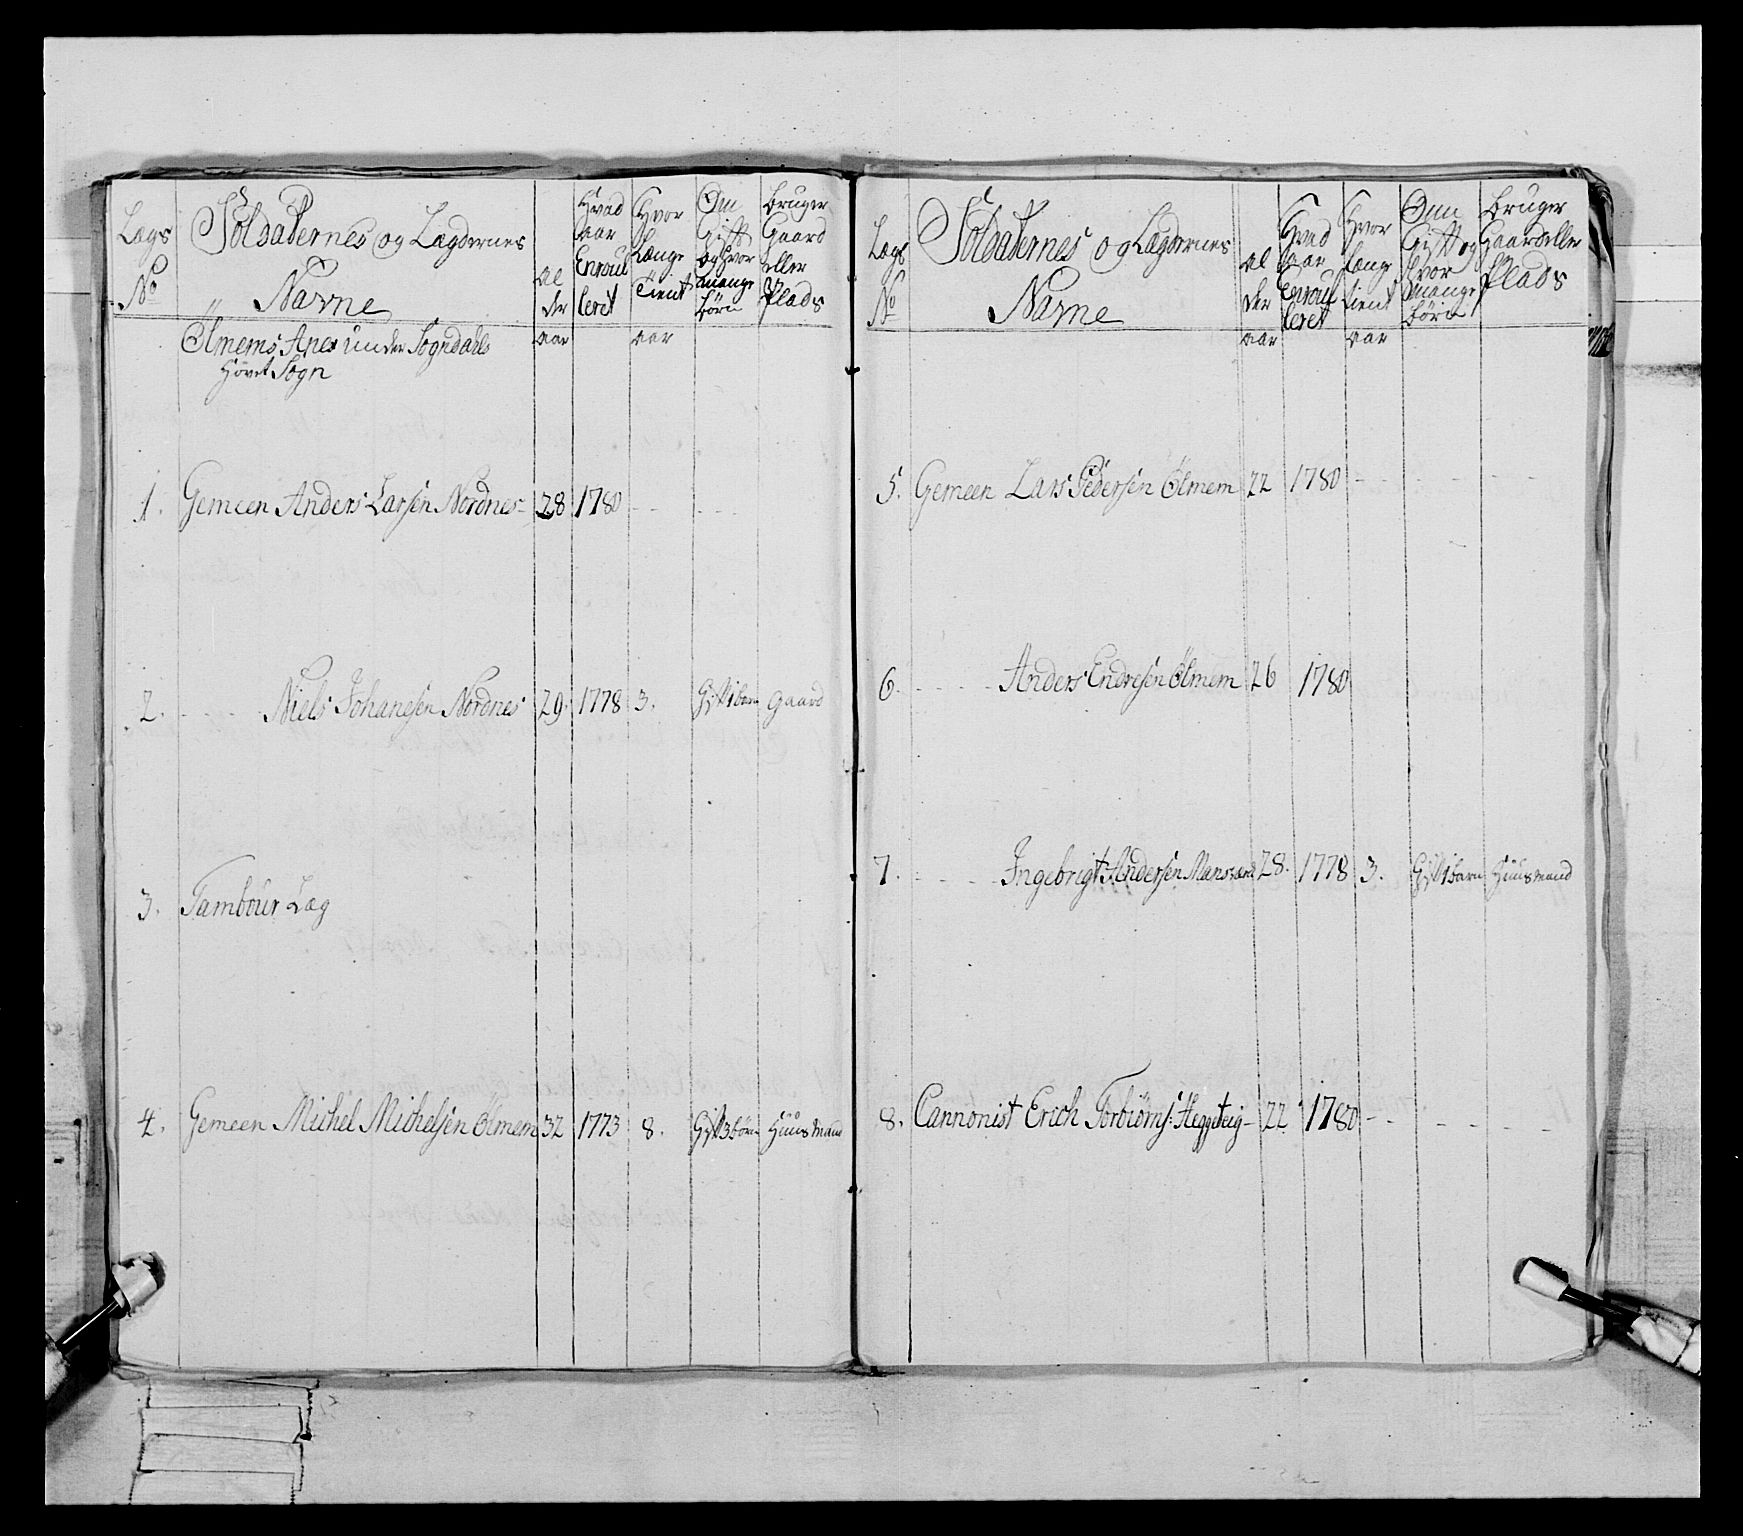 Lægs No
Soldaternes og Lægdernes Navne
Al der aar
Hvad aar Enroul leret
Hvor Længe Tient aar
Om Gift og hvor mange börn
bruger Gaard eller Plads
Ölmems under Sogndahls
Hövet Sogn
1. Gemeen Anders Larsen Nordnes - 28 1780 - - - -
2. - - - Niels Johanesen Nordnes 29. 1778 3. Gift 1 barn gaard
3. Tambour Læg
4. Gemeen Michel Michelsen Ölmem 32 1773 8. Gift 3 börn Huusmand
Lægs No
Soldaternes og Lægdernes Navne
Al der aar
Hvad aar Enroul leret
Hvor længe tient aar
Om Gift og hvor mange börn
bruger Gaard eller Plads
5. Gemeen Lars Pedersen Ölmem 22 1780 - - - - - -
6. - - - - Anders Endresen Ölmem 26 1780
7. - - - - Ingebrigt Andersen 28. 1778 3. Gift 1 barn Huusmand
8. Cannonist Erich Torbiörns: Heggsteig - 22 1780 - - - - - -